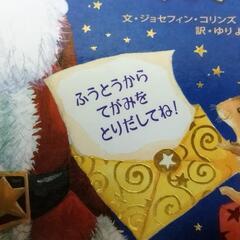 文・ジョセフィン・コリンズ
訳・ゆりよ
ふうとうから
てがみを
とりだしてね!